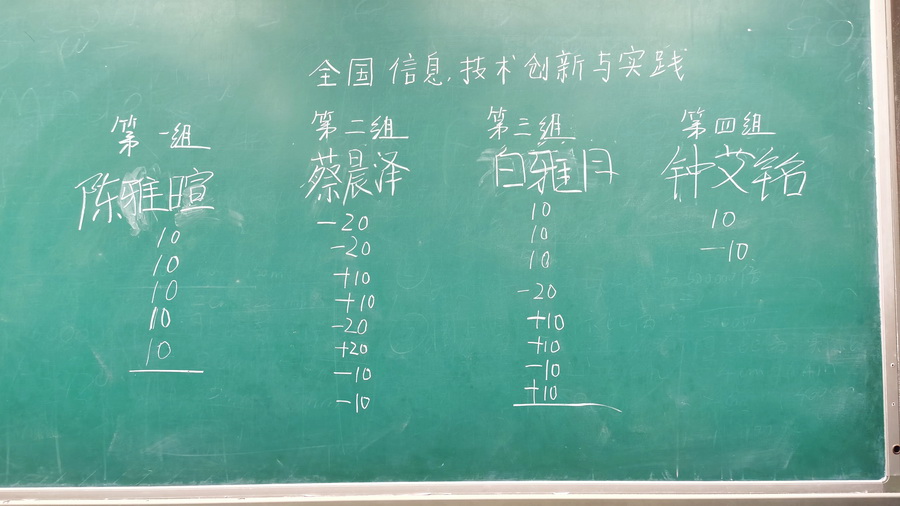 全国信息技术创新与实践
第一组
陈雅暄
10
10
10
10
10
第二组
蔡晨泽
-20
-20
+10
+10
-20
+20
-10
-10
第三组
白雅丹
10
10
10
-20
+10
+10
-10
+10
第四组
钟艾铭
10
-10